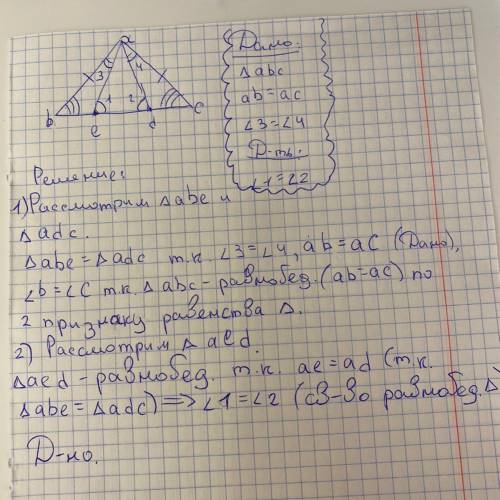 a
3 4
1 2
b e d c
Дано:
Δabc
ab=ac
∠3=∠4
Д-ть:
∠1=∠2
Решение:
1) Рассмотрим Δabe и
Δadc.
Δabe=Δadc т.к. ∠3=∠4, ab=ac (Дано),
∠b=∠C т.к. Δabc-равнобед. (ab=ac) по
2 признаку равенства Δ.
2) Рассмотрим Δaed.
Δaed-равнобед. т.к. ae=ad (т.к.
Δabe=Δadc) => ∠1=∠2 (св-во равнобед. Δ)
Д-но.